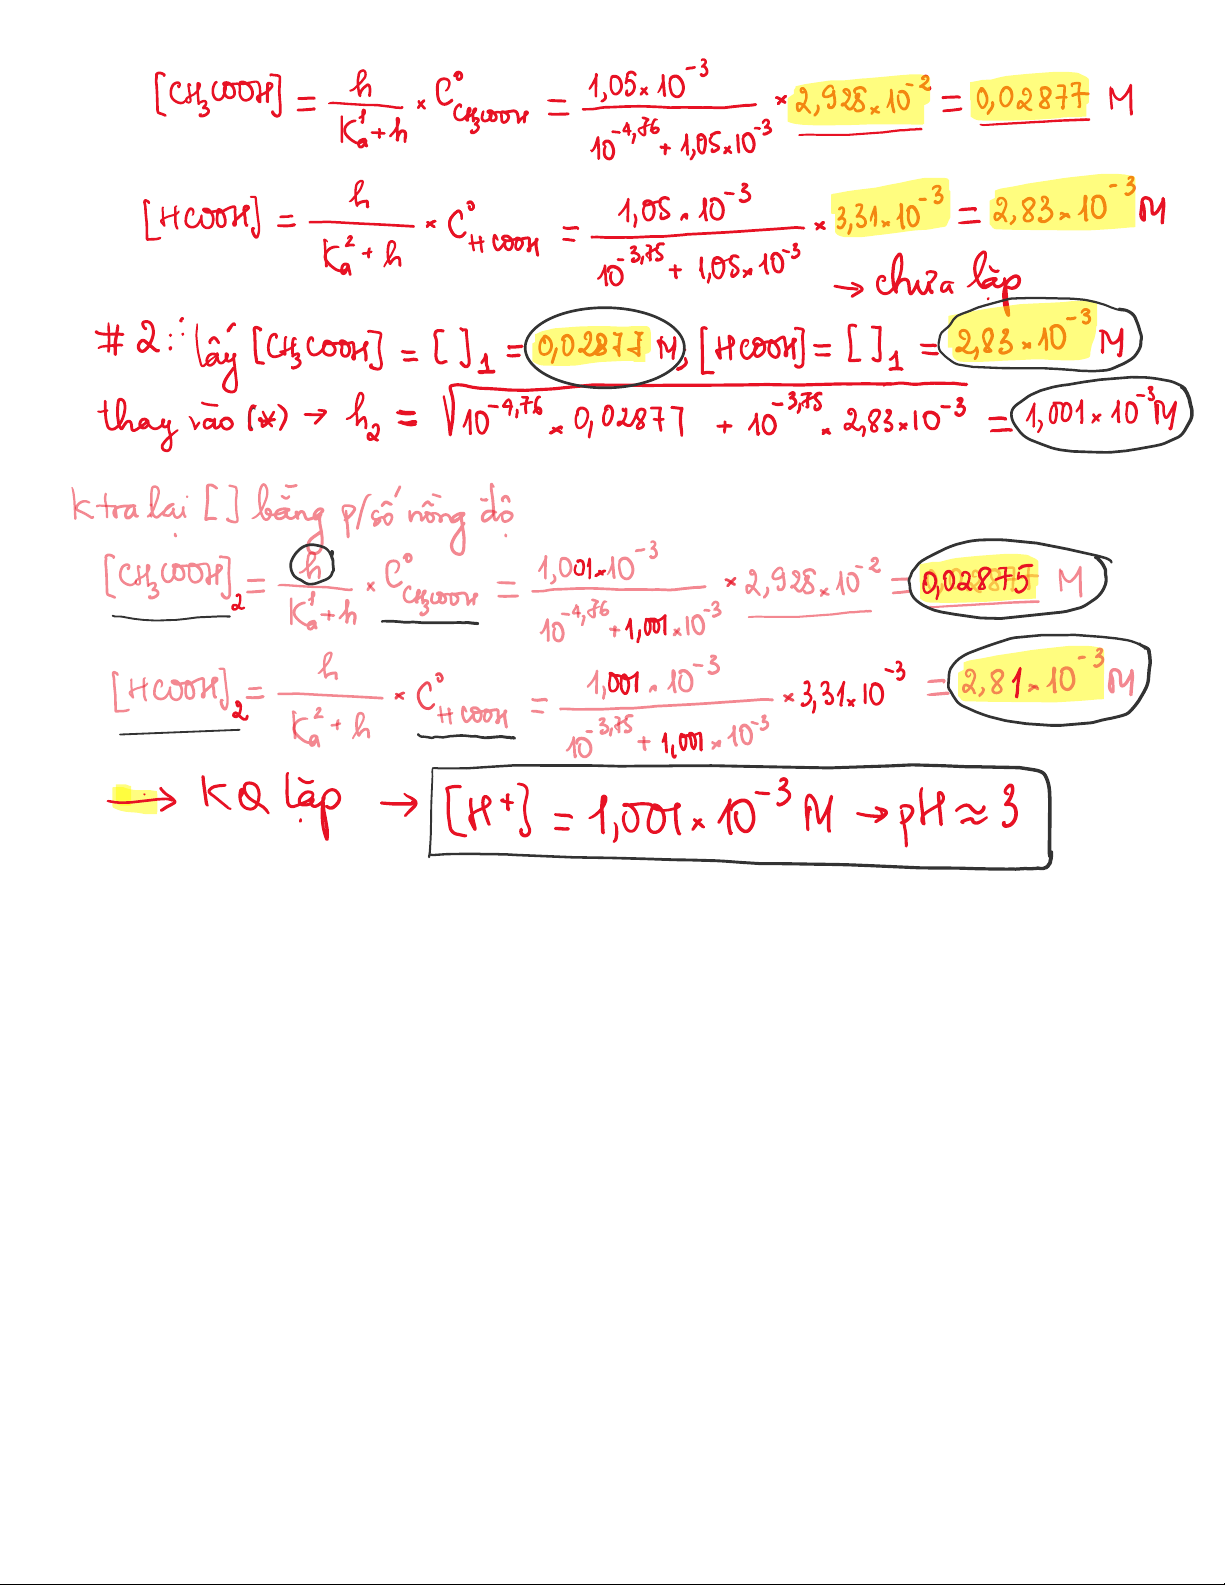 [CH₃COOH] = h / (Ka¹ + h) × C°CH₃COOH = 1,05×10⁻³ / (10⁻⁴,⁷⁶ + 1,05×10⁻³) × 2,928×10⁻² = 0,02877 M
[HCOOH] = h / (Ka² + h) × C°HCOOH = 1,05×10⁻³ / (10⁻³,⁷⁵ + 1,05×10⁻³) × 3,31×10⁻³ = 2,83×10⁻³ M
→ chưa lặp
# 2: lấy [CH₃COOH] = [ ]₁ = 0,02877 M, [HCOOH] = [ ]₁ = 2,83×10⁻³ M
thay vào (*) → h₂ = √(10⁻⁴,⁷⁶ × 0,02877 + 10⁻³,⁷⁵ × 2,83×10⁻³) = 1,001×10⁻³ M
Ktra lại [ ] bằng p/số nồng độ
[CH₃COOH]₂ = h / (Ka¹ + h) × C°CH₃COOH = 1,001×10⁻³ / (10⁻⁴,⁷⁶ + 1,001×10⁻³) × 2,928×10⁻² = 0,02875 M
[HCOOH]₂ = h / (Ka² + h) × C°HCOOH = 1,001×10⁻³ / (10⁻³,⁷⁵ + 1,001×10⁻³) × 3,31×10⁻³ = 2,81×10⁻³ M
→ KQ lặp → [H⁺] = 1,001×10⁻³ M → pH ≈ 3